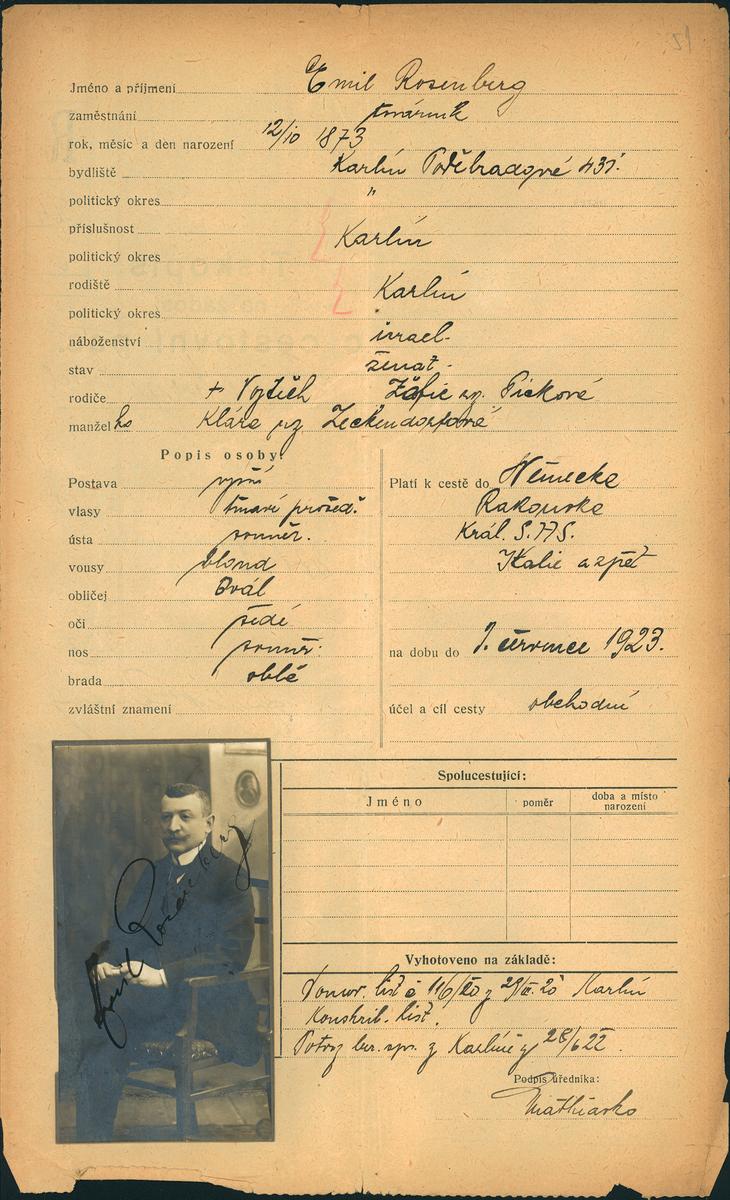 51
Jméno a příjmení Emil Rosenberg
zaměstnání továrník
rok, měsíc a den narození 12/10 1873
bydliště Karlín Poděbradové 431.
politický okres "
příslušnost
politický okres Karlín
rodiště Karlín
politický okres
náboženství israel.
stav ženat.
rodiče + Vojtěch Žofie roz. Pickové
manžel ka Klára roz Zeckendorfové
Popis osoby:
Postava vyšší
vlasy tmavé prošed.
ústa souměr.
vousy blond
obličej Ovál
oči šedé
nos souměr.
brada oblá
zvláštní znamení
Platí k cestě do Německa
Rakouska
Král. S.H.S.
Italie a zpět
na dobu do 1. července 1923.
účel a cíl cesty obchodní
Spolucestující:
Jméno poměr doba a místo
narození
Emil Rosenberg
Vyhotoveno na základě:
Domov. list č 116/20 z Karlín
Konskrib. list.
Potvrz ber. spr. z Karlíně z 28/6 22.
Podpis úředníka: